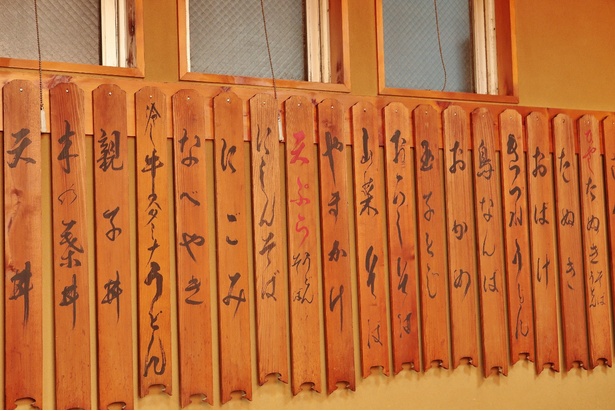 たぬき
たぬき
おばけ
きつねうどん
鳥なんば
おかめ
玉子とじ
おろしそば
山菜そば
やまかけ
天ぷら
にしんそば
にこみ
なべやき
冷し牛スタミナうどん
親子丼
木の葉丼
天丼